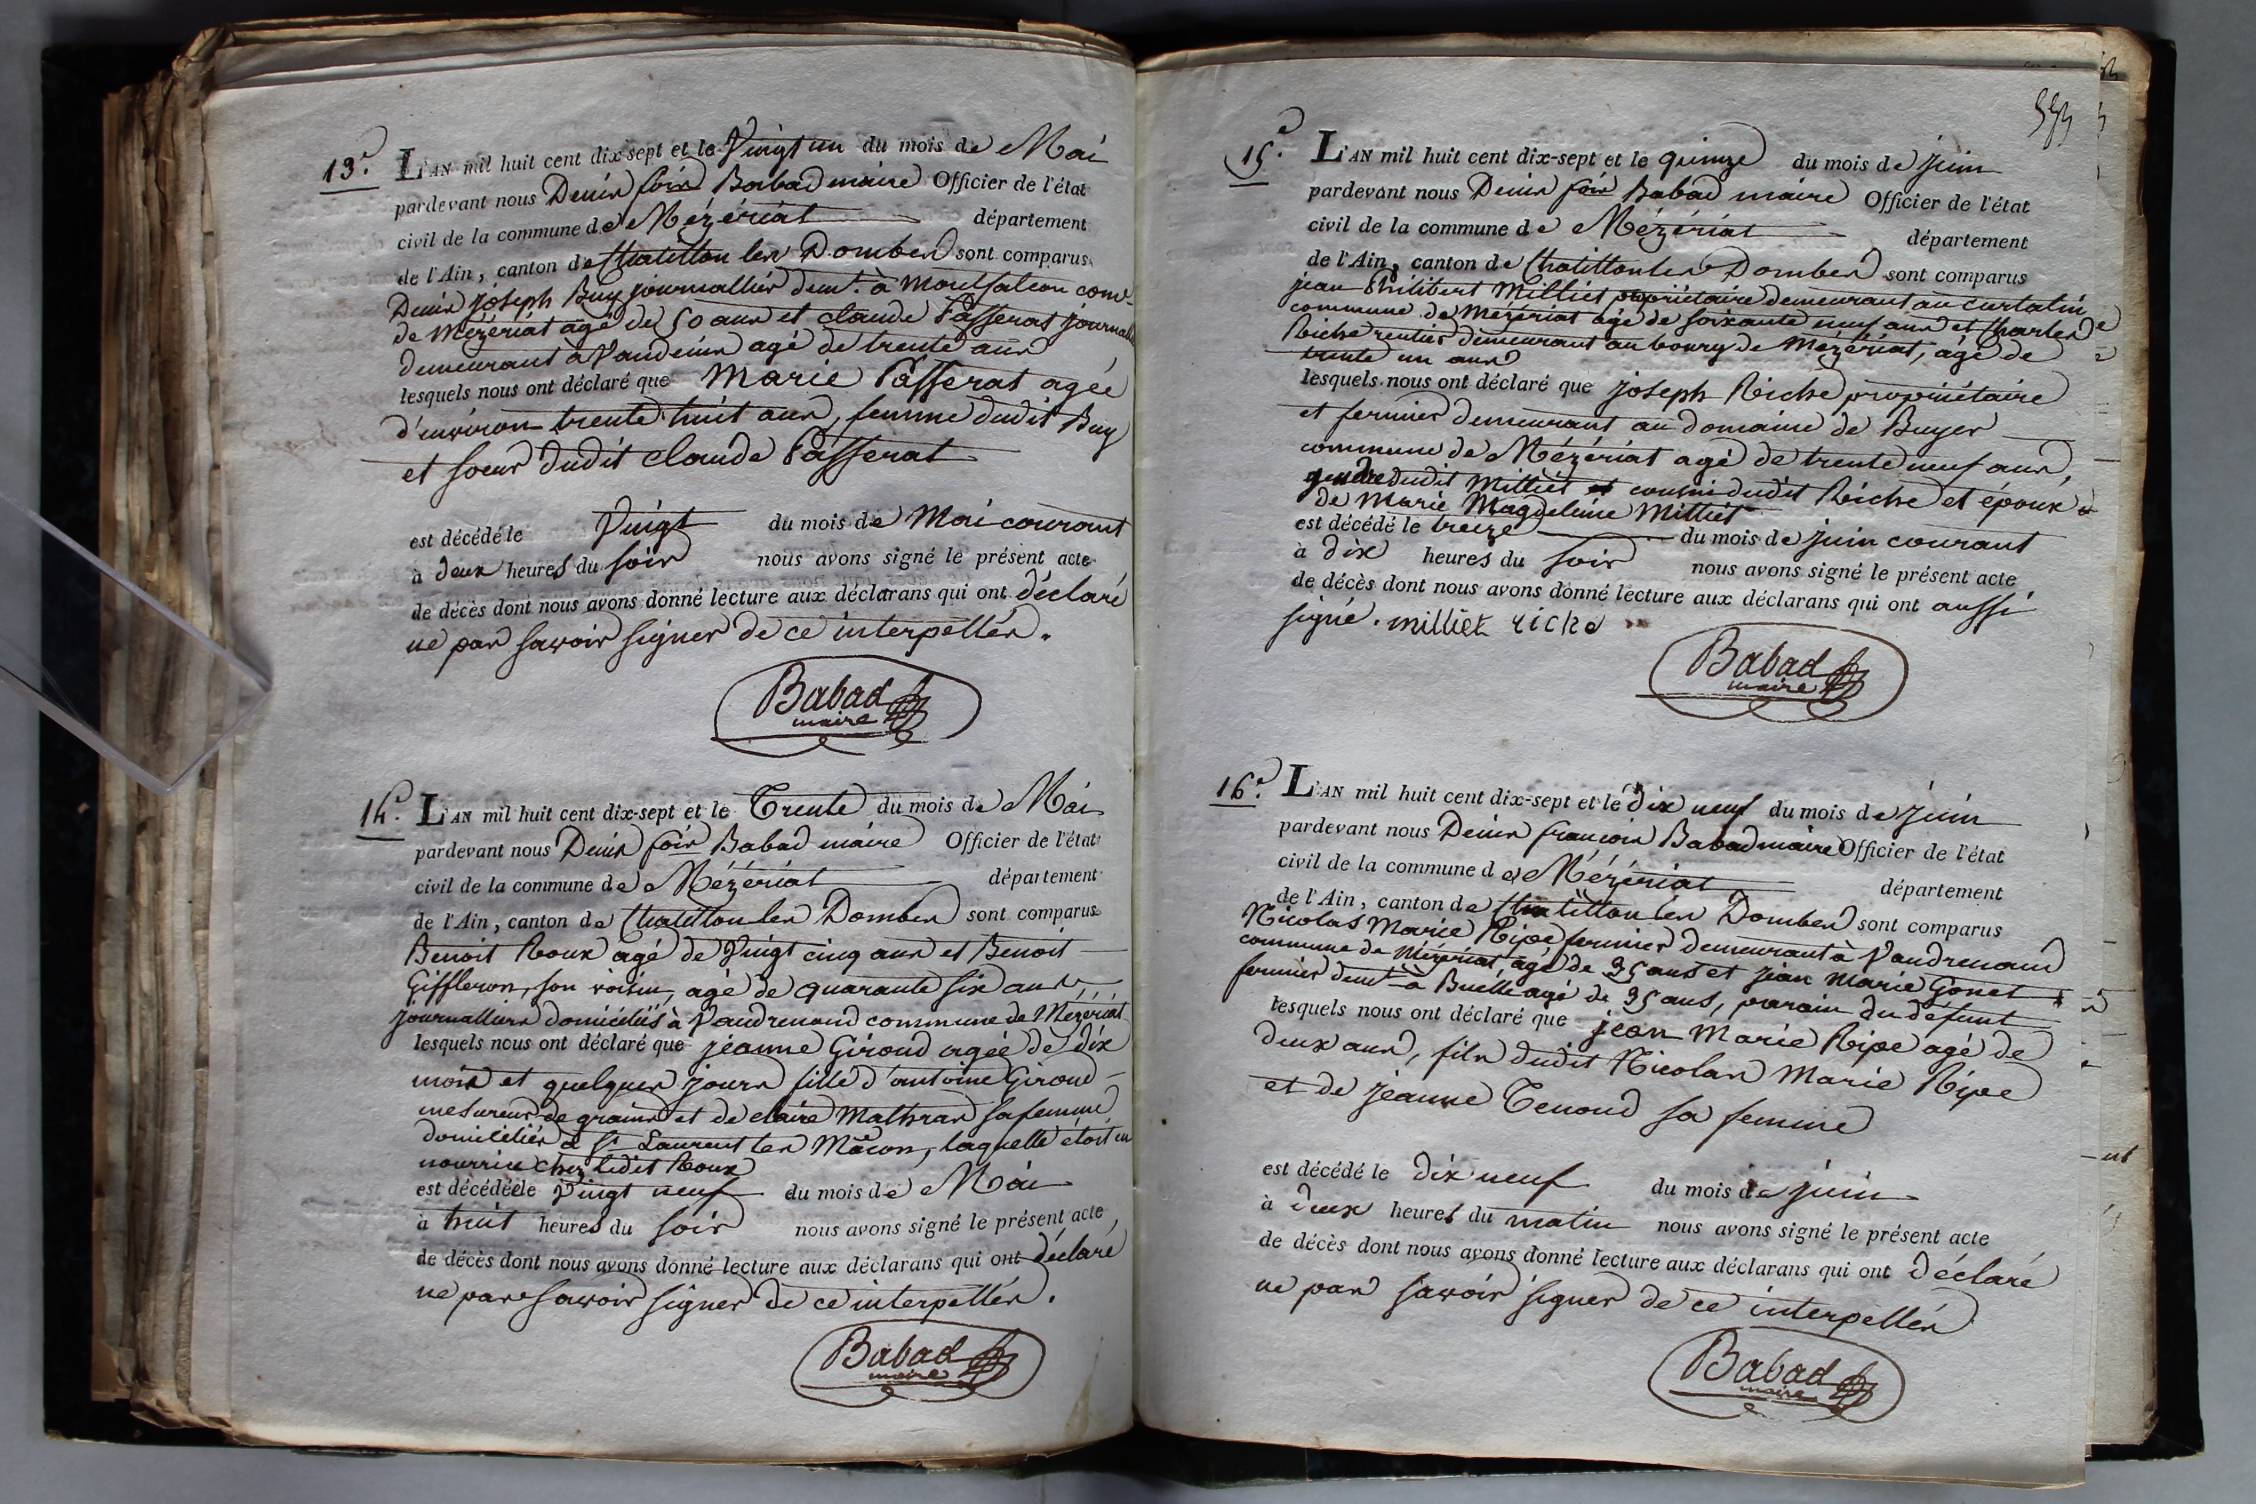 13.e L'AN mil huit cent dix-sept et le Vingt un du mois de Mai
pardevant nous Denis fois Babad maire Officier de l'état
civil de la commune de Mézériat département
de l'Ain, canton de Chatillon les Dombes sont comparus
Denis joseph Buy journallier demt. à Montfalcon come
de Mézériat agé de 50 ans et claude Passerat journalle
demeurant à Vaudenis agé de trente ans
lesquels nous ont déclaré que Marie Passerat agée
d'environ trente huit ans, femme dudit Buy
et soeur dudit claude Passerat
est décédé le Vingt du mois de Mai courant
à deux heures du soir nous avons signé le présent acte
de décès dont nous avons donné lecture aux déclarans qui ont déclaré
ne pas savoir signer de ce interpellés.
Babad
maire
14.e L'AN mil huit cent dix-sept et le Trente du mois de Mai
pardevant nous Denis fois Babad maire Officier de l'état
civil de la commune de Mézériat département
de l'Ain, canton de Chatillon les Dombes sont comparus
Benoit Roux agé de Vingt cinq ans et Benoit
Giffleron, son voisin, agé de quarante six ans,
journalliers domiciliés à Vaudrenand commune de Mézériat
lesquels nous ont déclaré que jeanne Giroud agée de dix
mois et quelques jours fille d'antoine Giroud
mesureur de grains et de claire Mathras sa femme
domiciliés à St Laurent les Mâcon, laquelle étoit en
nourrice chez ledit Roux
est décédée le Vingt neuf du mois de Mai
à huit heures du soir nous avons signé le présent acte
de décès dont nous avons donné lecture aux déclarans qui ont déclaré
ne pas savoir signer de ce interpellés.
Babad
maire
15.e L'AN mil huit cent dix-sept et le quinze du mois de juin
pardevant nous Denis fois Babad maire Officier de l'état
civil de la commune de Mézériat département
de l'Ain, canton de Chatillon les Dombes sont comparus
jean Philibert Milliet propriétaire demeurant au curtalin
commune de Mézériat agé de soixante neuf ans et Charles
Riche rentier demeurant au bourg de Mézériat, agé de
trente un ans
lesquels nous ont déclaré que joseph Riche propriétaire
et fermier demeurant au domaine de Buyer
commune de Mézériat agé de trente neuf ans,
gendre dudit Milliet et cousin dudit Riche et époux
de Marie Magdeleine Milliet
est décédé le treize du mois de juin courant
à dix heures du soir nous avons signé le présent acte
de décès dont nous avons donné lecture aux déclarans qui ont aussi
signé. milliet riche
Babad
maire
16.e L'AN mil huit cent dix-sept et le dix neuf du mois de juin
pardevant nous Denis françois Babad maire Officier de l'état
civil de la commune de Mézériat département
de l'Ain, canton de Chatillon les Dombes sont comparus
Nicolas Marie Ripe fermier demeurant à Vaudrenand
commune de Mézériat agé de 35 ans et jean Marie Gonet
fermier demt à Buelle agé de 35 ans, parain du défunt
lesquels nous ont déclaré que jean Marie Ripe agé de
deux ans, fils dudit Nicolas Marie Ripe
et de jeanne Tenoud sa femme
est décédé le dix neuf du mois de juin
à deux heures du matin nous avons signé le présent acte
de décès dont nous avons donné lecture aux déclarans qui ont déclaré
ne pas savoir signer de ce interpellés
Babad
maire